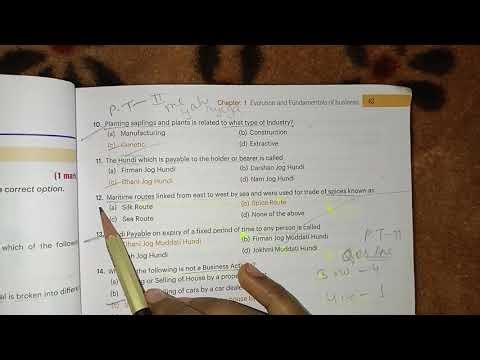 P.T-II
Chapter: 1 Evolution and Fundamentals of business 43
10. Planting saplings and plants is related to what type of Industry?
(a) Manufacturing (b) Construction
(c) Genetic (d) Extractive
11. The Hundi which is payable to the holder or bearer is called
(a) Firman Jog Hundi (b) Darshan Jog Hundi
(c) Dhani Jog Hundi (d) Nam Jog Hundi
12. Maritime routes linked from east to west by sea and were used for trade of spices known as
(a) Silk Route (b) Spice Route
(c) Sea Route (d) None of the above
13. di Payable on expiry of a fixed period of time to any person is called
Dhani Jog Muddati Hundi (b) Firman Jog Muddati Hundi
ah Jog Hundi (d) Jokhmi Muddati Hundi
14. W the following is not a Business Act
(a) g or Selling of House by a prop
(b) elling of cars by a car deale
(c) house by
(d)
(1 mar
e correct option.
which of the
al is broken into differ
P.T-II